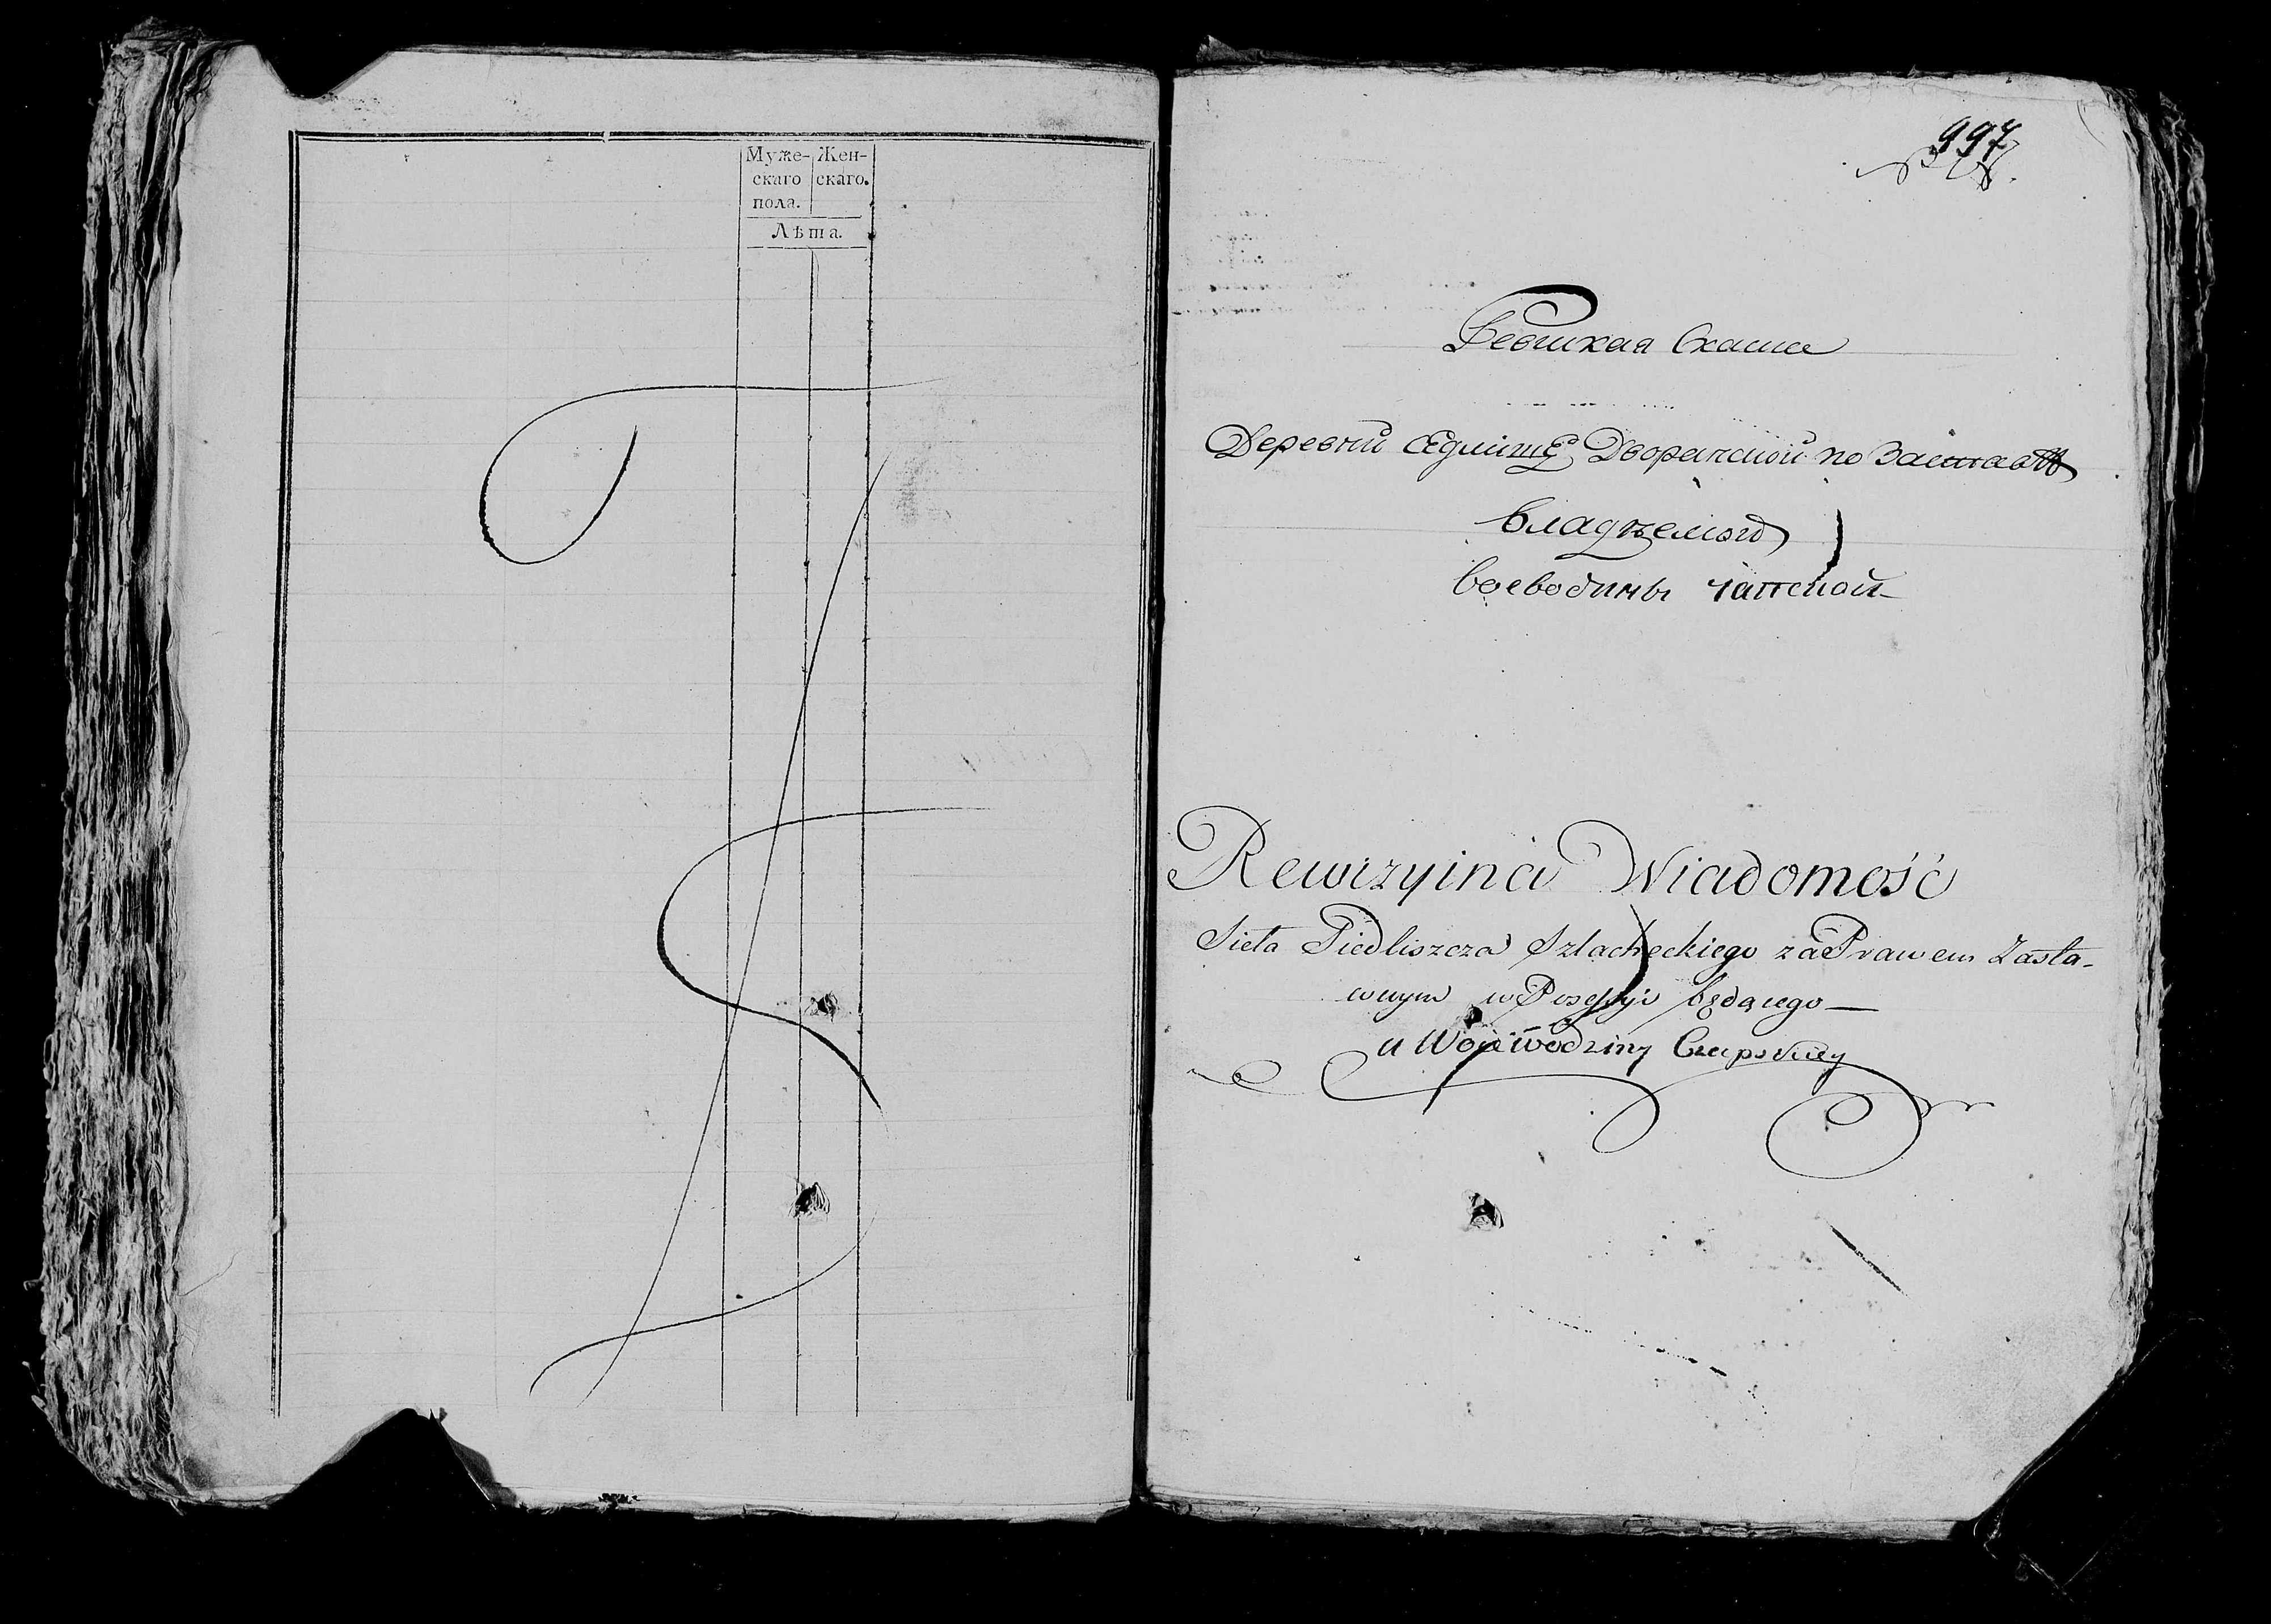 Муже- Жен-
скаго скаго.
пола.
Лѣта.
997
Деревни Седлище Дворанской по Заставѣ
владѣемой
воеводины чапской
Rewizyina Wiadomość
Sieła Siedliszcza Szlacheckiego za Prawem Zasta-
wnym w Posessyi będącego
u Woiewodziny Czapskiey